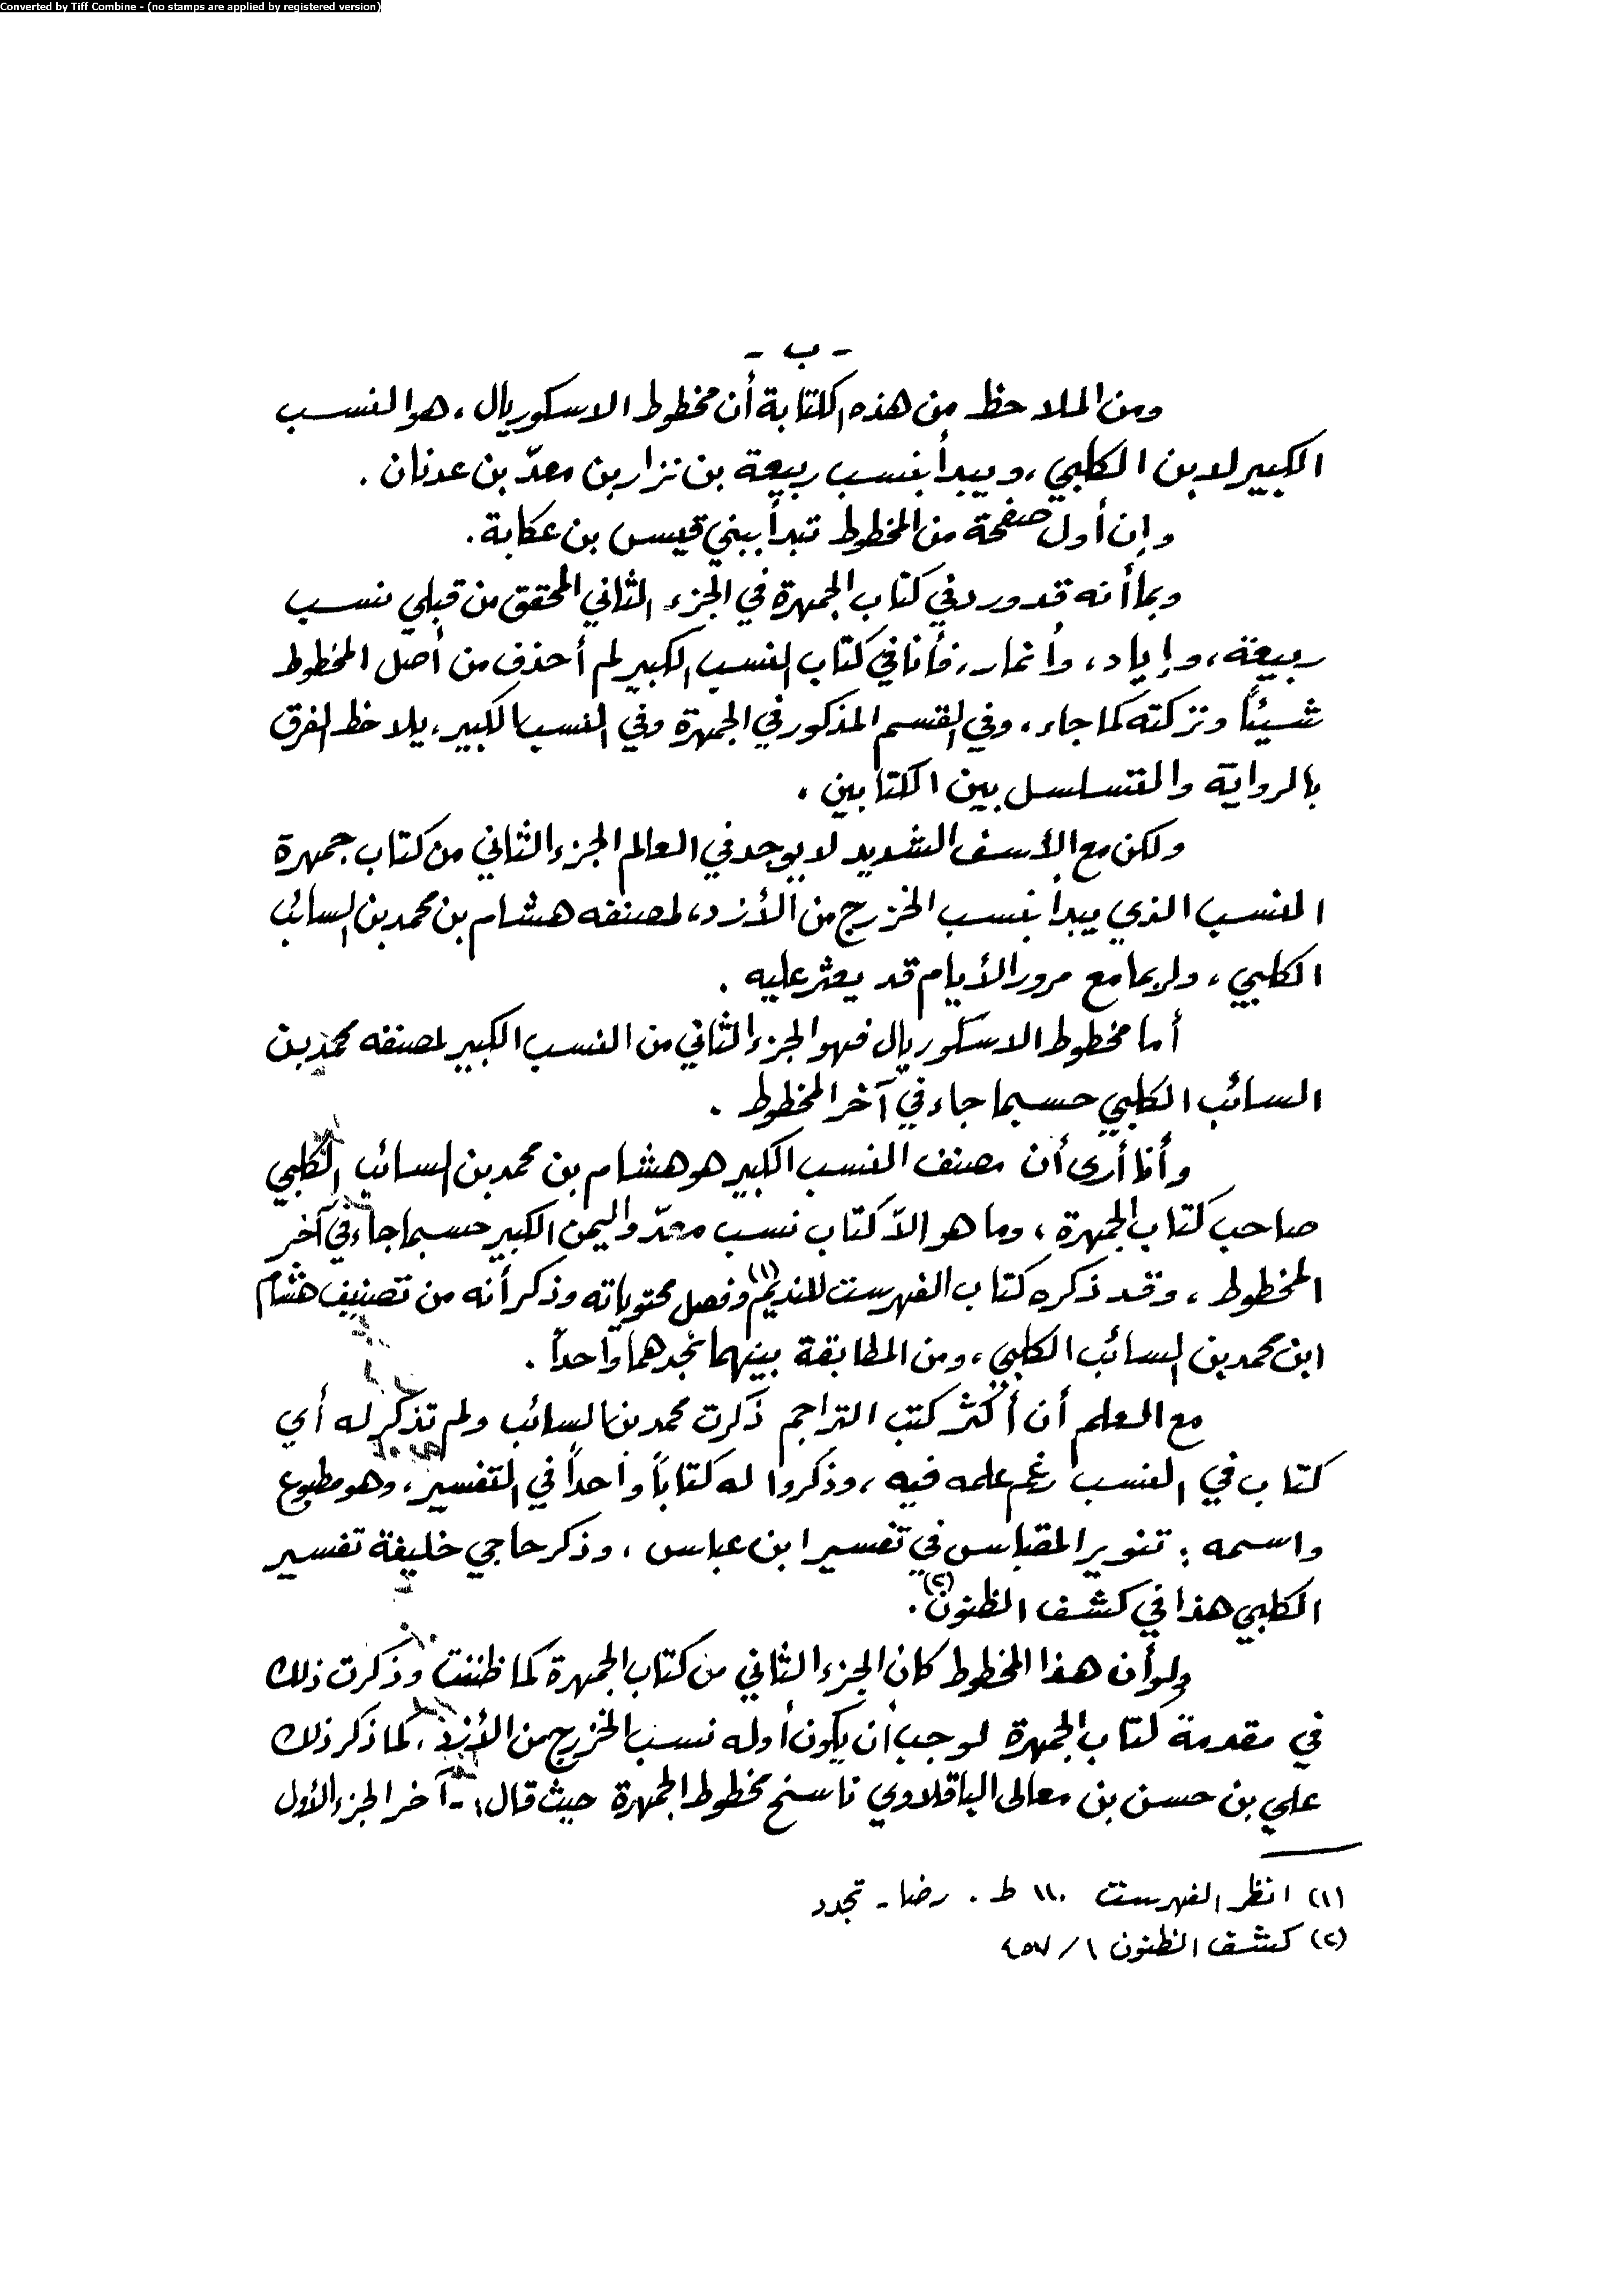 Converted by Tiff Combine - (no stamps are applied by registered version)
- ب -
ومن الملاحظ من هذه الكتابة أن مخطوط الاسكوريال، هو النسب
الكبير لابن الكلبي، ويبدأ بنسب ربيعة بن نزار بن معدّ بن عدنان .
وإن أول صفحة من المخطوط تبدأ ببني قيس بن عكابة .
وبما أنه قد ورد في كتاب الجمهرة في الجزء الثاني المحقق من قبلي نسب
ربيعة، وإياد، وأنمار، فأنا في كتاب النسب الكبير لم أحذف من أصل المخطوط
شيئاً وتركته كما جاء، وفي القسم المذكور في الجمهرة وفي النسب الكبير، يلاحظ الفرق
بالرواية والتسلسل بين الكتابين .
ولكن مع الأسف الشديد لا يوجد في العالم الجزء الثاني من كتاب جمهرة
النسب الذي يبدأ بنسب الخزرج من الأزد، لمصنفه هشام بن محمد بن السائب
الكلبي، ولربما مع مرور الأيام قد يعثر عليه .
أما مخطوط الاسكوريال فهو الجزء الثاني من النسب الكبير لمصنفه محمد بن
السائب الكلبي حسبما جاء في آخر المخطوط .
وأنا أرى أن مصنف النسب الكبير هو هشام بن محمد بن السائب الكلبي
صاحب كتاب الجمهرة، وما هو الاّ كتاب نسب معدّ واليمن الكبير حسبما جاء في آخر
المخطوط، وقد ذكره كتاب الفهرست للنديم(١) وفصل محتوياته وذكر أنه من تصنيف هشام
ابن محمد بن السائب الكلبي، ومن المطابقة بينهما نجدهما واحداً .
مع العلم أن أكثر كتب التراجم ذكرت محمد بن السائب ولم تذكر له أي
كتاب في النسب رغم علمه فيه، وذكروا له كتاباً واحداً في التفسير، وهو مطبوع
واسمه : تنوير المقباس في تفسير ابن عباس، وذكر حاجي خليفة تفسير
الكلبي هذا في كشف الظنون(٢).
ولو أن هذا المخطوط كان الجزء الثاني من كتاب الجمهرة كما ظننت وذكرت ذلك
في مقدمة كتاب الجمهرة لوجب أن يكون أوله نسب الخزرج من الأزد، كما ذكر ذلك
علي بن حسن بن معالى الباقلاوي ناسخ مخطوط الجمهرة حيث قال :- آخر الجزء الأول
(١) انظر الفهرست ١١٠ ط . رضا - تجدد
(٢) كشف الظنون ١/ ٤٥٧